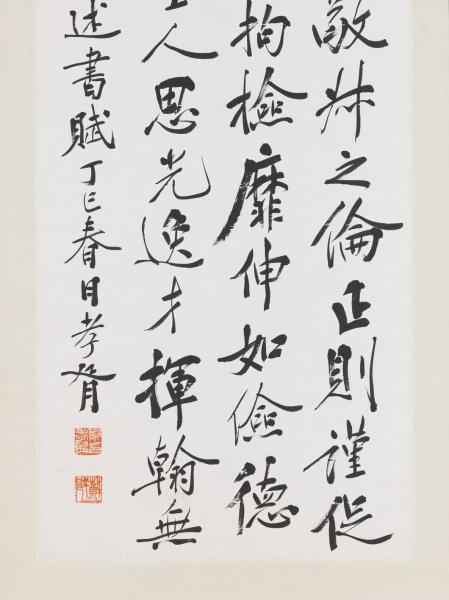 叔之倫正則謹促
拘檢靡伸如儉德
人思光逸才揮翰無
述書賦丁巳春日孝胥